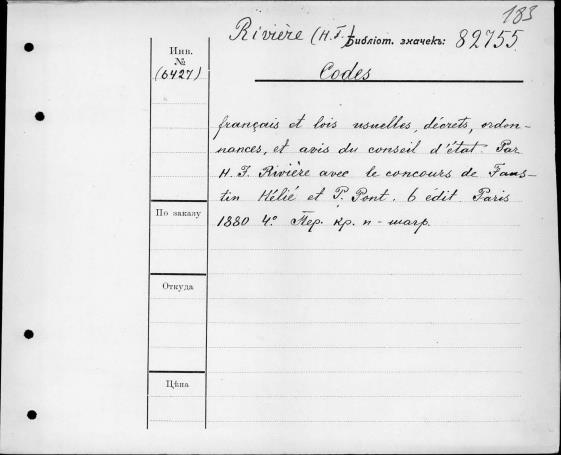 183
Rivière (H. F.) Библіот. значекъ: 82755
Инв.
№
(6427)
Codes
français et lois usuelles, décrets, ordon-
nances, et avis du conseil d'état. Par
H. F. Rivière avec le concours de Faus-
tin Hélié et P. Pont. 6 édit. Paris
1880 4°. Пер. кр. п-шагр.
По заказу
Откуда
Цѣна